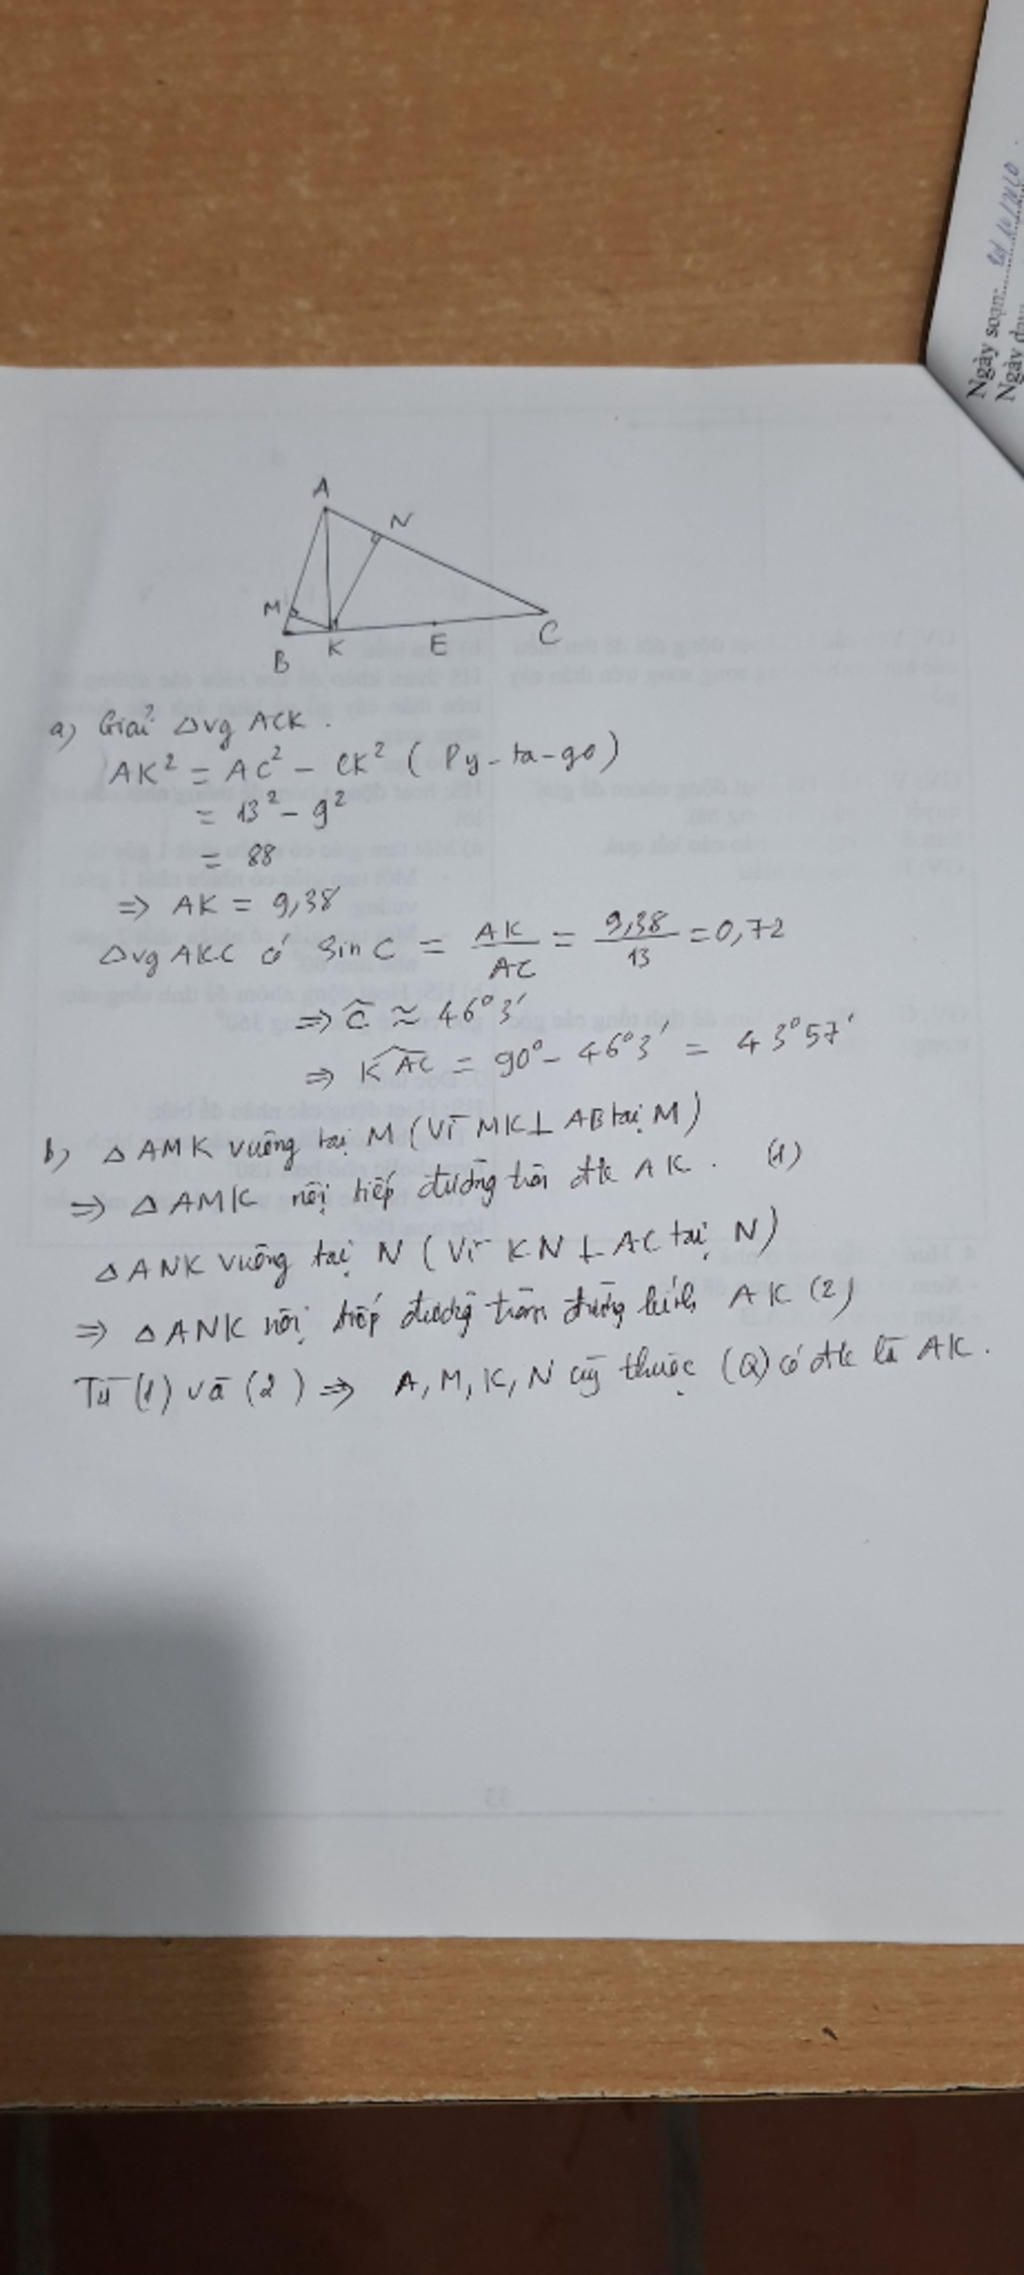 Ngày soạn:
A
N
M
B
K
E
C
a) Giải △vg ACK.
AK² = AC² - CK² (Py-ta-go)
= 13² - 9²
= 88
⇒ AK = 9,38
△vg AKC có sin C = AK/AC = 9,38/13 = 0,72
⇒ Ĉ ≈ 46°3'
⇒ KAC = 90° - 46°3' = 43°57'
b) △AMK vuông tại M (Vì MK⊥AB tại M)
⇒ △AMK nội tiếp đường tròn đk AK. (1)
△ANK vuông tại N (Vì KN⊥AC tại N)
⇒ △ANK nội tiếp đường tròn đường kính AK (2)
Từ (1) và (2) ⇒ A, M, K, N cùng thuộc (Q) có đk là AK.